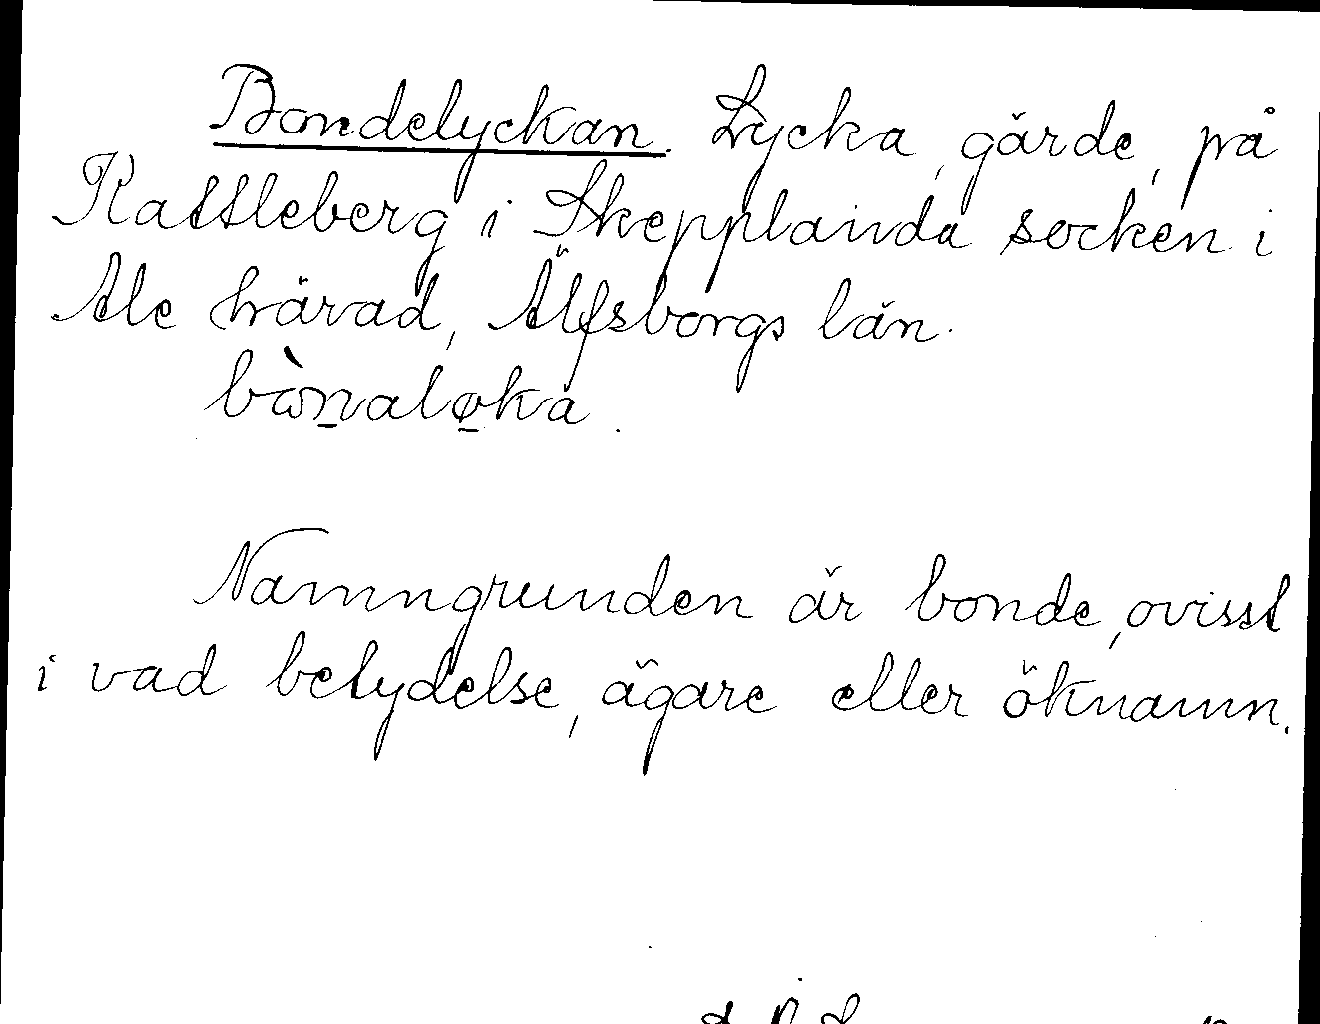 Bondelyckan. Lycka, gärde, på
Rattleberg i Skepplanda socken i
Ale härad, Älfsborgs län.
bὼn̠alø̠ka.
Namngrunden är bonde, ovisst
i vad betydelse, ägare eller öknamn.